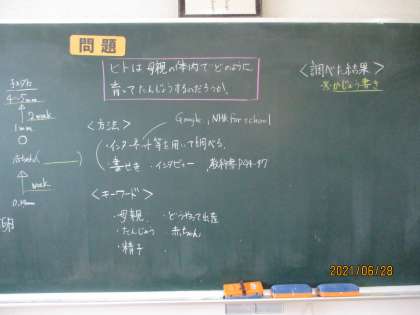 問題
ヒトは母親の体内でどのように
育ってたんじょうするのだろうか。
<調べた結果>
※かじょう書き
メダカ
4-5mm
2week
1mm
week
<方法>
Google, NHK for school
・インターネット等を用いて調べる。
・書せき ・インタビュー ・教科書P94-97
<キーワード>
・母親 ・どうやって出産
・たんじょう 赤ちゃん
・精子
2021/06/28